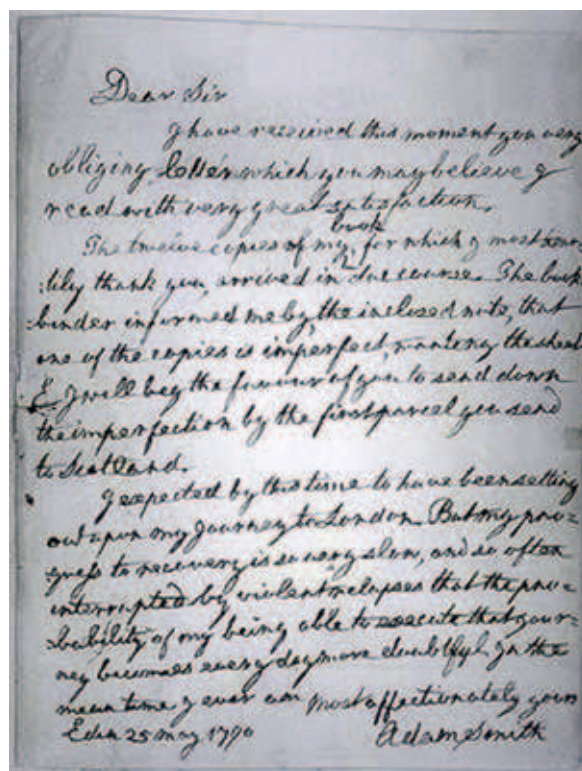 Dear Sir
I have received this moment your very
obliging Letter which you may believe I
read with very great satisfaction.
The twelve copies of my book, for which I most hear=
:tily thank you, arrived in due course. The book
:binder informed me by the inclosed note, that
one of the copies is imperfect, wanting the sheet
E. I will beg the favour of you to send down
the imperfection by the first parcel you send
to Scotland.
I expected by this time to have been setting
out upon my Journey to London. But my pro=
:gress to recovery is so very slow, and so often
interrupted by violent relapses that the pro=
:bability of my being able to execute that Jour=
ney becomes every day more doubtful. In the
mean time I ever am most affectionately yours
Edin 25 may 1790 Adam Smith